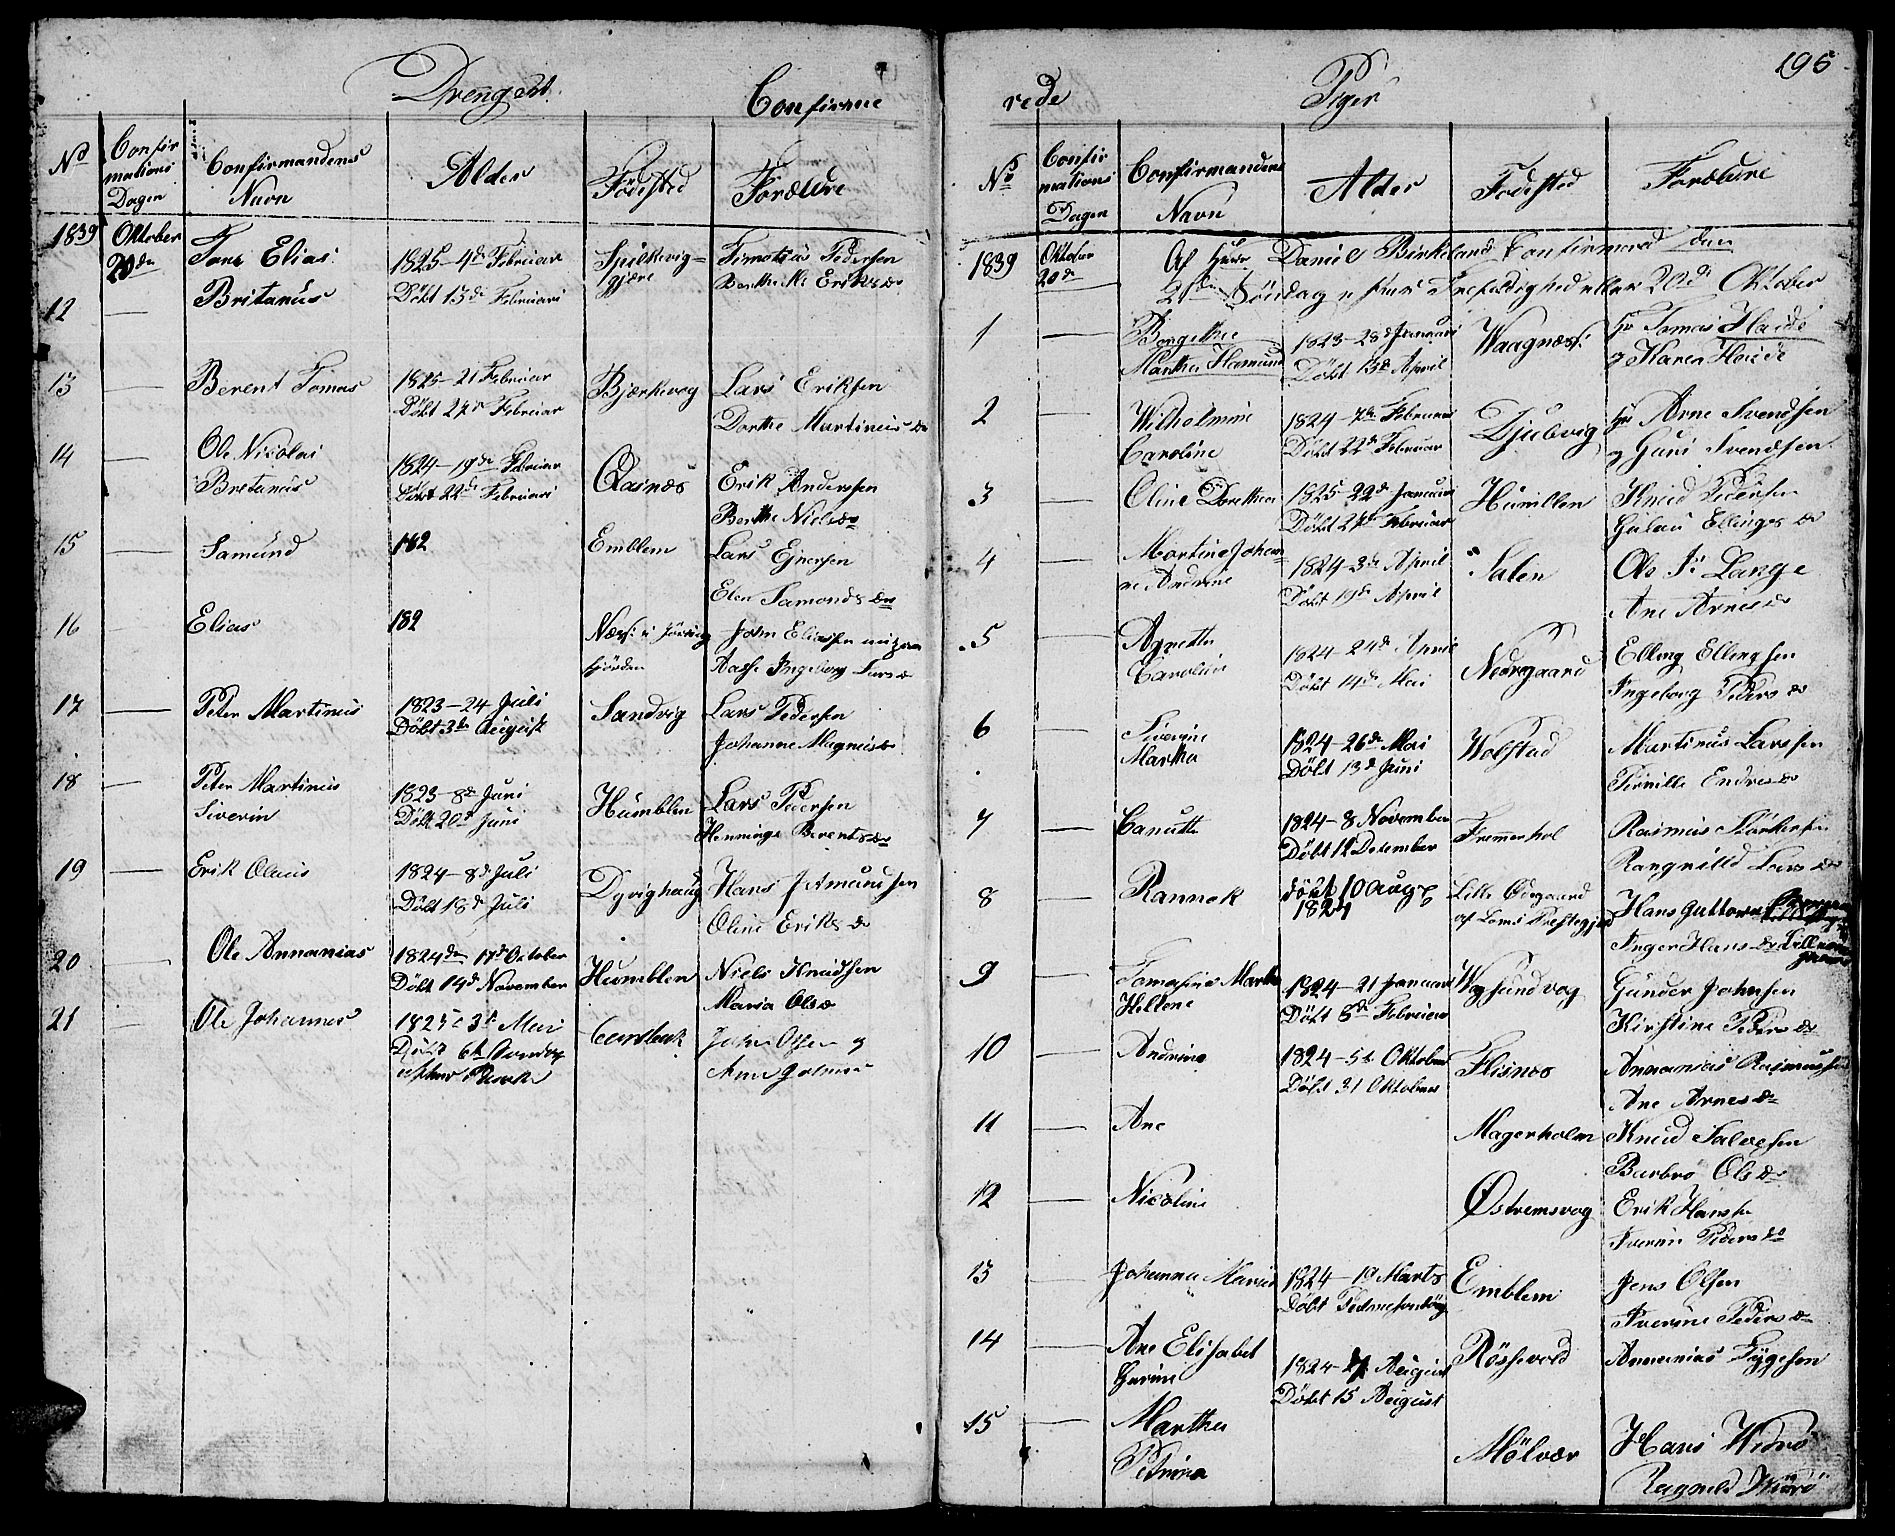 Drenge
Confirme
No
Confir
mations
Dagen
Confirmandens
Navn
Alder
Födested
Forældre
1839
Oktober
20de
12
Elias
Britanus
1825 - 4de Februar
Döbt 13de Februari
Spilkevig=
gjære
Timotius Pedersen
Berthe Eriks D
13
Berent Tomas
1825 - 21 Februar
Döbt 24de Februar
Bjørkevog
Lars Eriksen
Dorthe Martinus D
14
Ole Nicolai
Bretanus
1824 - 19de Februar
Döbt 22de Februari
Erik Andersen
Berthe Niels D
15
Samund
182
Emblem
Lars Ejnersen
Elen Samonds D
16
Elias
182
John Eliassen
Aasse Ingeborg Lars D
17
Peter Martinus
1823 - 24 Juli
Döbt 3de August
Sandvig
Lars Pedersen
Johanne Magnus D
18
Peter Martinus
Siverin
1823 - 8de Juni
Döbt 20de Juni
Humblen
Lars Pedersen
Henninge Berents D
19
Erik Olaus
1824 - 8de Juli
Döbt 18de Juli
Dyrighaug
Hans J Amundsen
Oline Eriks D
20
Ole Annanias
1824de 17de October
Döbt 14de November
Humblen
Niels Knudsen
Maria Ols D
21
Ole Johannes
1825 3de Mai
Döbt 6te Sondag
efter Paaske
Johan Olsen og
Ane
196
rede
Piger
No
Confir
mations
Dagen
Confirmandens
Navn
Alder
Fodested
Forældre
1839
Oktober
20de
Af Herr Daniel Birkeland Confirmered den
21de Söndag efter Trefoldighed eller 20de Oktober
1
Bergethe
Martha Hamund
1823 - 28de Januari
Döbt 13de April
Waagnæs
Hr Tomas Haide
og Karen Haide
2
Wilhelmine
Caroline
1824 - 7de Februar
Döbt 22de Februar
Djubvig
Hr Arne Svendsen
og Guri Svendsen
3
Oline Dorethea
1825 - 22de Januari
Döbt 24de Februar
Humblen
Knud Pedersen
Ellings D
4
Martine Johan=
ne Andrine
1824 - 3de April
Döbt 19de April
Salen
Ole Lange
Ane Arnes D
5
Agnethe
Caroline
1824 - 24de April
Döbt 14de Mai
Nedregaard
Elling Ellingsen
Ingeborg Peders D
6
Siverine
Martha
1824 - 26de Mai
Döbt 13de Juni
Wolstad
Martinus Larssen
Pernille Endres D
7
Canutte
1824 - 8 November
Döbt 12 December
Fremmerhol
Rasmus
Rangnild Lars D
8
Rannok
Döbt 10 Aug
1824
Lille Ødegaard
af Loms Prestegjeld
Hans Guttorm
Inger Hans D
9
Tomasine Marthe
Hellene
1824 - 21 Januari
Döbt 8de Februar
Wegsundvog
Gunder Johnsen
Kirstine Peders D
10
Andrine
1824 - 5te Oktober
Döbt 31 Oktober
Flisnes
Annanias Rasmussen
Ane Arnes D
11
Ane
Magerholm
Knud Salvesen
Barbro Ols D
12
Nicoline
Østremsvog
Erik Hansen
Iverine Peders D
13
Johanna Maria
1824 - 19 Marts
Döbt
Emblem
Jens Olsen
Iverine Peders D
14
Ane Elisabet
Gurine
1824 - 4 August
Döbt 15 August
Rössevold
Annanias Tygesen
15
Marthe
Petrine
Mölvær
Hans Widnö
Ragnild Widnö